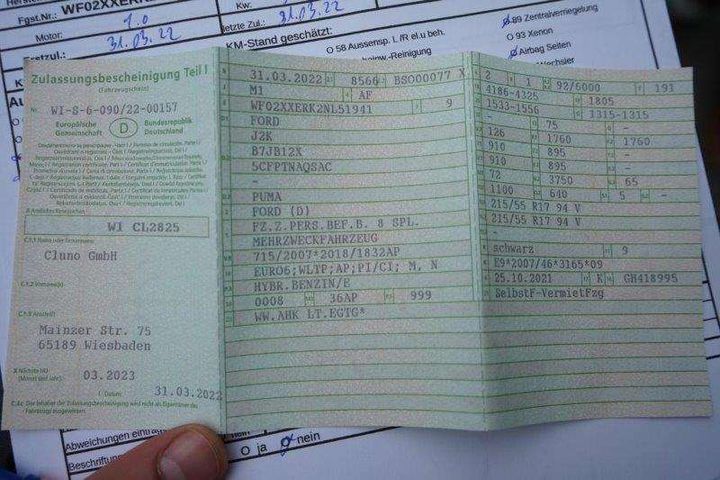 Fgst.Nr.: WF02XXER
Motor: 1.0
31.03.22
Kw:
letzte Zul.: 31.03.22
KM-Stand geschätzt:
O 58 Aussensp. L /R el.u beh.
89 Zentralverriegelung
O 93 Xenon
Airbag Seiten
Zulassungsbescheinigung Teil I
(Fahrzeugschein)
Nr. WI-S-6-090/22-00157
Europäische Gemeinschaft D Bundesrepublik Deutschland
A Amtliches Kennzeichen
WI CL2825
C.1.1 Name oder Firmenname
Cluno GmbH
C.1.2 Vorname(n)
C.1.3 Anschrift
Mainzer Str. 75
65189 Wiesbaden
Nächste HU
(Monat und Jahr) 03.2023
I Datum: 31.03.2022
C.4c Der Inhaber der Zulassungsbescheinigung wird nicht als Eigentümer des Fahrzeugs ausgewiesen.
31.03.2022 8566 BSO00077 X
M1 AF
WF02XXERK2NL51941 9
FORD
J2K
B7JB12X
5CFPTNAQSAC
-
PUMA
FORD (D)
FZ.Z.PERS.BEF.B. 8 SPL.
MEHRZWECKFAHRZEUG
715/2007*2018/1832AP
EURO6;WLTP;AP;PI/CI; M, N
HYBR.BENZIN/E
0008 36AP 999
WW.AHK LT.EGTG*
2 1 92/6000 191
4186-4325 1805
1533-1556 1315-1315
75 -
126 1760 1760
910 895 -
910 895 -
72 3750 65
1100 640 5 -
215/55 R17 94 V
215/55 R17 94 V
-
schwarz 9
E9*2007/46*3165*09
25.10.2021 K GH418995
SelbstF-VermietFzg
O ja O nein